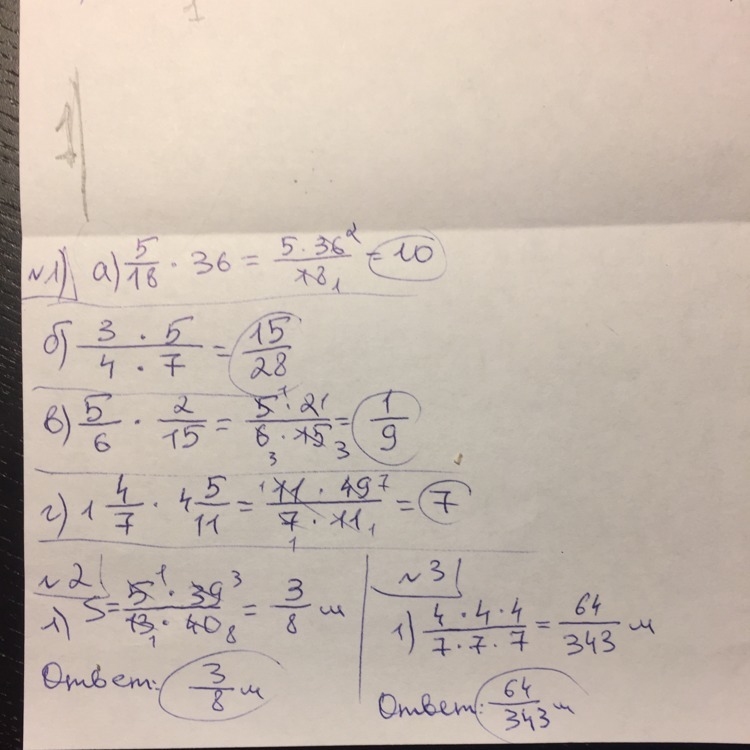 1
1)
№1) а) 5/18 · 36 = 5 · 36²/18₁ = 10
б) 3 · 5/4 · 7 = 15/28
в) 5/6 · 2/15 = 5¹ · 2¹/6₃ · 15₃ = 1/9
г) 1 4/7 · 4 5/11 = ¹11 · 49⁷/7₁ · 11₁ = 7
№2
1) S = 5¹ · 39³/13₁ · 40₈ = 3/8 м
Ответ: 3/8 м
№3
1) 4 · 4 · 4/7 · 7 · 7 = 64/343 м
Ответ: 64/343 м